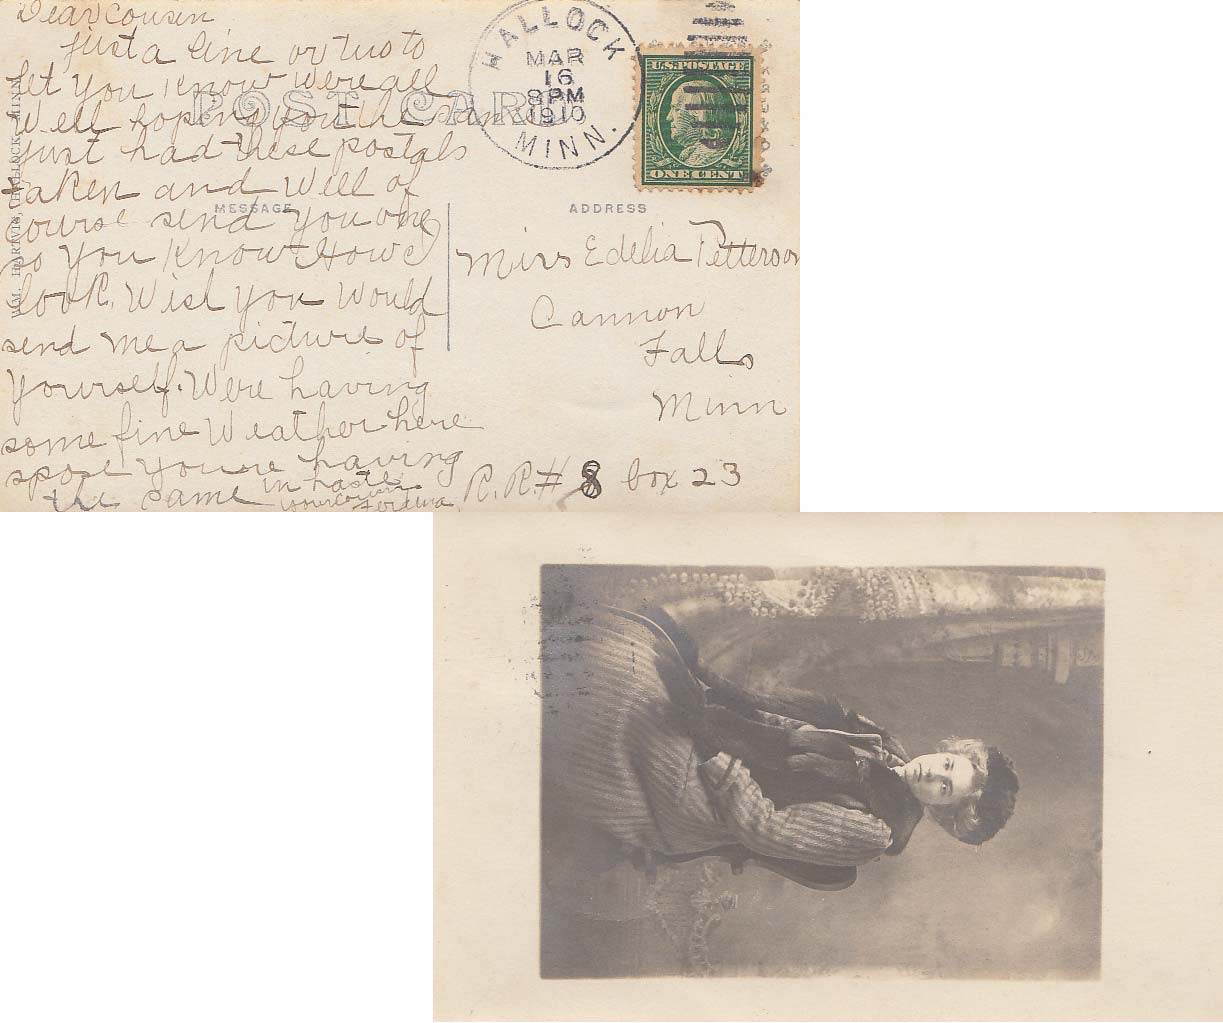 Dear Cousin
Just a line or two to
let you know were all
Well hoping you the same
Just had these postals
taken and Will of
course send you one
so you know How I
look. Wish you Would
send me a picture of
yourself. Were having
some fine Weather here
spose you're having
the same in haste
your cousin
POST CARD
MESSAGE
WM. HALLOCK, MINN.
HALLOCK
MAR
16
8 PM
1910
MINN.
U.S. POSTAGE
ONE CENT
ADDRESS
Miss Edelia Petterson
Cannon
Falls
Minn
R. R. # 8 box 23